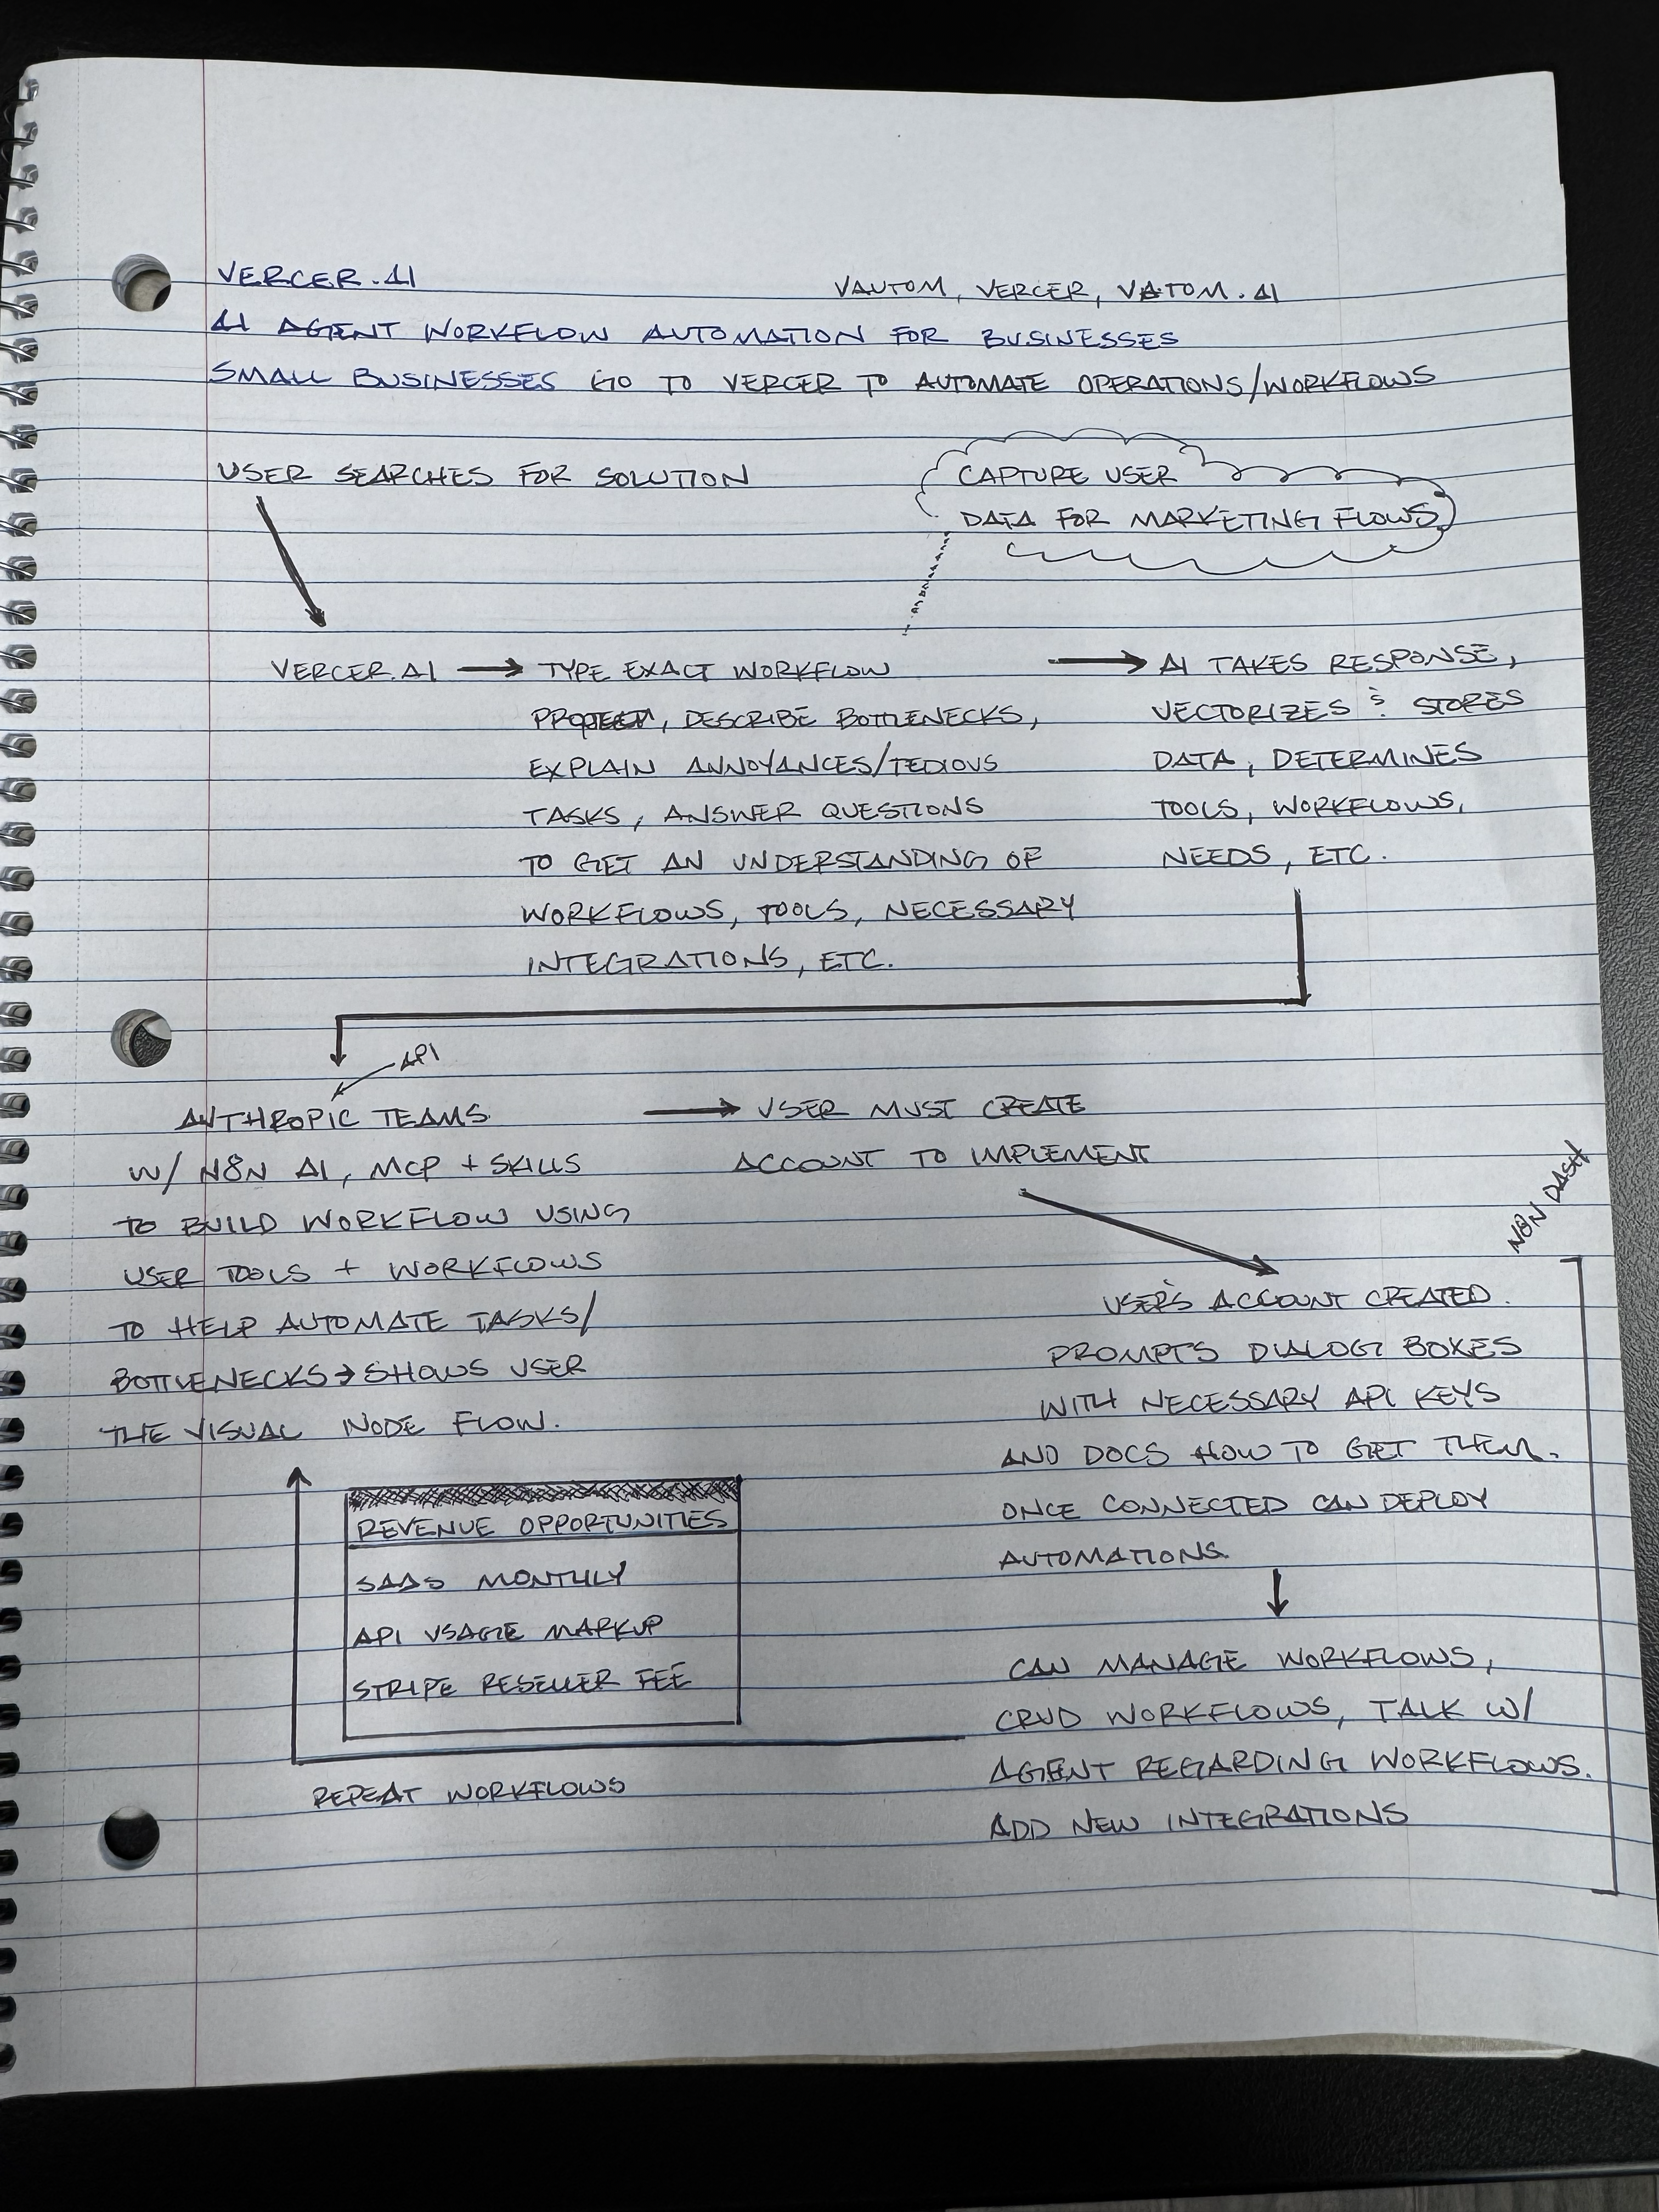 VERCER.AI
VAUTOM, VERCER, VATOM.AI
AI AGENT WORKFLOW AUTOMATION FOR BUSINESSES
SMALL BUSINESSES GO TO VERCER TO AUTOMATE OPERATIONS/WORKFLOWS
USER SEARCHES FOR SOLUTION
CAPTURE USER
DATA FOR MARKETING FLOWS
VERCER.AI → TYPE EXACT WORKFLOW
, DESCRIBE BOTTLENECKS,
EXPLAIN ANNOYANCES/TEDIOUS
TASKS, ANSWER QUESTIONS
TO GET AN UNDERSTANDING OF
WORKFLOWS, TOOLS, NECESSARY
INTEGRATIONS, ETC.
→ AI TAKES RESPONSE,
VECTORIZES & STORES
DATA, DETERMINES
TOOLS, WORKFLOWS,
NEEDS, ETC.
API
ANTHROPIC TEAMS
W/ N8N AI, MCP + SKILLS
TO BUILD WORKFLOW USING
USER TOOLS + WORKFLOWS
TO HELP AUTOMATE TASKS/
BOTTLENECKS → SHOWS USER
THE VISUAL NODE FLOW.
→ USER MUST CREATE
ACCOUNT TO IMPLEMENT
N8N DASH
USER'S ACCOUNT CREATED.
PROMPTS DIALOG BOXES
WITH NECESSARY API KEYS
AND DOCS HOW TO GET THEM.
ONCE CONNECTED CAN DEPLOY
AUTOMATIONS.
CAN MANAGE WORKFLOWS,
CRUD WORKFLOWS, TALK W/
AGENT REGARDING WORKFLOWS.
ADD NEW INTEGRATIONS
REVENUE OPPORTUNITIES
SAAS MONTHLY
API USAGE MARKUP
STRIPE RESELLER FEE
REPEAT WORKFLOWS